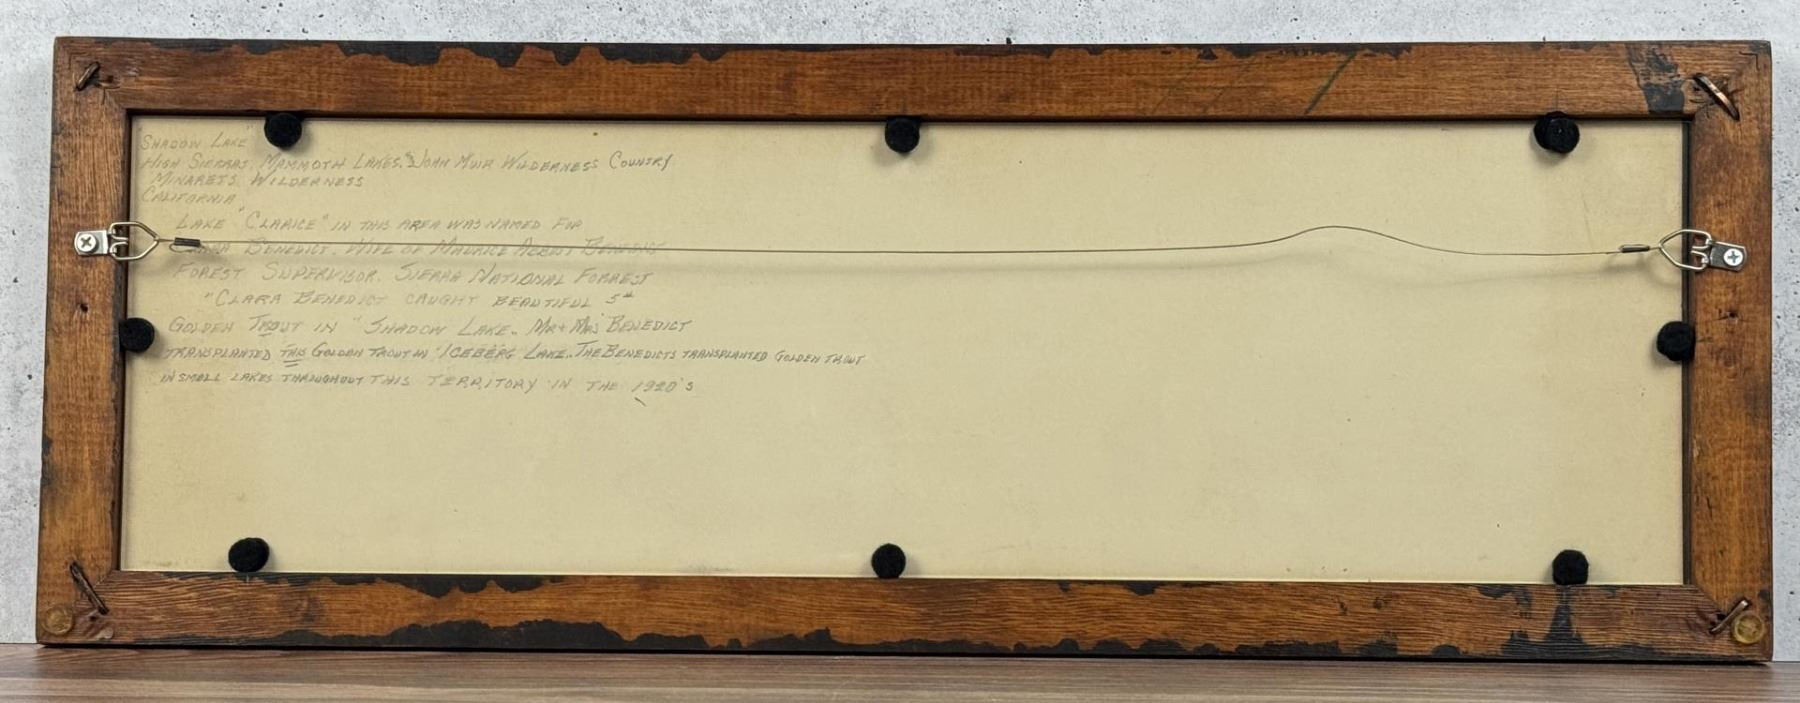 "Shadow Lake"
High Sierras, Mammoth Lakes, "John Muir Wilderness Country
Minarets Wilderness
California
Lake "Clarice" in this area was named for
Clara Benedict. Wife of Maurice Albert Benedict
Forest Supervisor. Sierra National Forrest
"Clara Benedict caught beautiful 5#
Golden Trout in "Shadow Lake". Mr + Mrs Benedict
transplanted this Golden Trout in "Iceberg Lake". The Benedicts transplanted Golden Trout
in small lakes throughout this territory in the 1920's